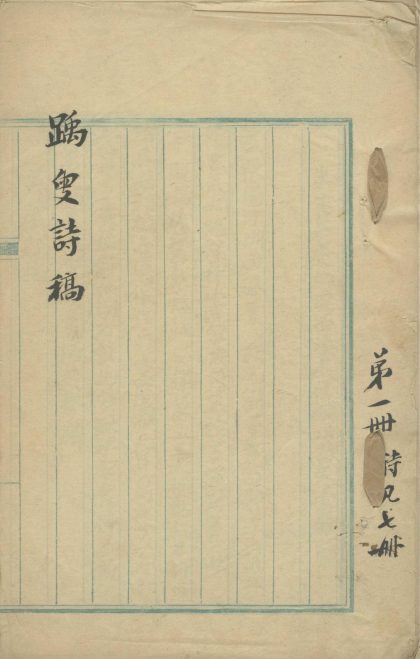 第一冊 詩凡七冊
踽叟詩稿